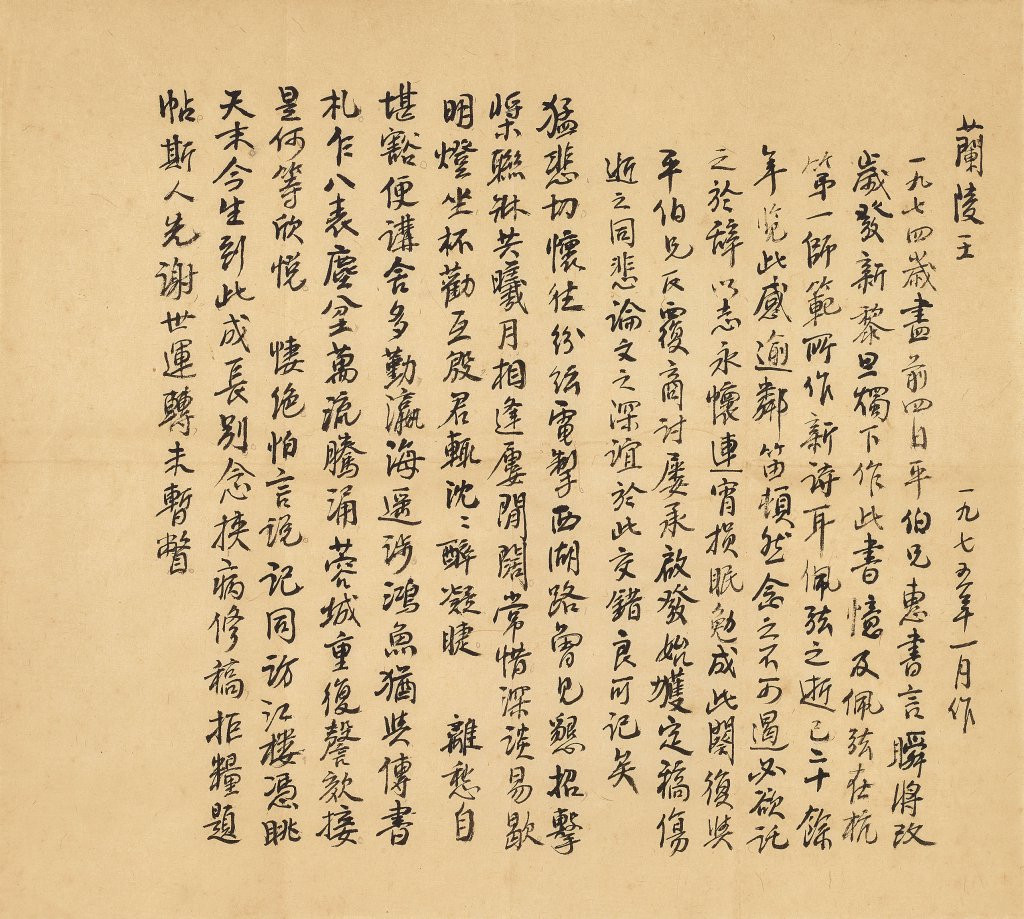 蘭陵王 一九七五年一月作
一九七四歲盡前四日平伯兄惠書言瞬將改
歲發新黎旦燭下作此書憶及佩弦在杭
第一師範所作新詩耳佩弦之逝已二十餘
年覽此感逾鄰笛頓然念之不可遏必欲託
之於辭以志永懷連宵損眠勉成此闋復與
平伯兄反覆商討屡承啟發始獲定稿傷
逝之同悲論文之深誼於此交錯良可記矣
猛悲切懷往紛紜電掣西湖路曾見懇招擊
槳聯牀共曦月相逢屢間闊常惜深談易歇
明燈坐杯勸互殷君輒沈〻醉凝睫 離愁自
堪豁便講舍多勤瀛海遥涉鴻魚猶與傳書
札乍八表塵坌萬流騰涌蓉城重復謦欬接
是何等欣悦 悽絶怕言説記同訪江樓憑眺
天末今生到此成長別念挾病修稿拒糧題
帖斯人先謝世運轉未暫瞥